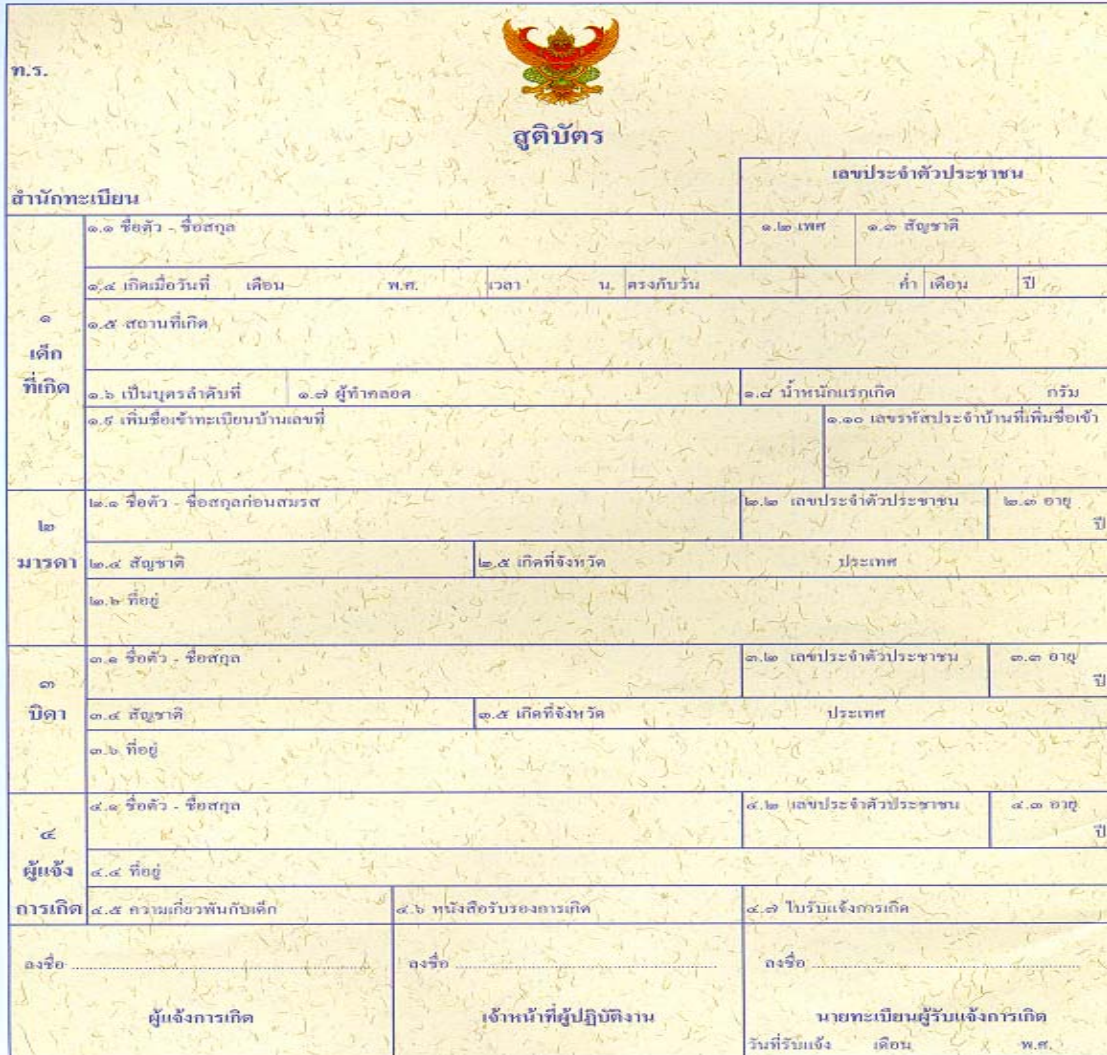 ท.ร.
สูติบัตร
เลขประจำตัวประชาชน
สำนักทะเบียน
๑
เด็ก
ที่เกิด
๑.๑ ชื่อตัว - ชื่อสกุล
๑.๒ เพศ
๑.๓ สัญชาติ
๑.๔ เกิดเมื่อวันที่ เดือน พ.ศ. เวลา น. ตรงกับวัน ค่ำ เดือน ปี
๑.๕ สถานที่เกิด
๑.๖ เป็นบุตรลำดับที่ ๑.๗ ผู้ทำคลอด ๑.๘ น้ำหนักแรกเกิด กรัม
๑.๙ เพิ่มชื่อเข้าทะเบียนบ้านเลขที่ ๑.๑๐ เลขรหัสประจำบ้านที่เพิ่มชื่อเข้า
๒
มารดา
๒.๑ ชื่อตัว - ชื่อสกุลก่อนสมรส ๒.๒ เลขประจำตัวประชาชน ๒.๓ อายุ
ปี
๒.๔ สัญชาติ ๒.๕ เกิดที่จังหวัด ประเทศ
๒.๖ ที่อยู่
๓
บิดา
๓.๑ ชื่อตัว - ชื่อสกุล ๓.๒ เลขประจำตัวประชาชน ๓.๓ อายุ
ปี
๓.๔ สัญชาติ ๓.๕ เกิดที่จังหวัด ประเทศ
๓.๖ ที่อยู่
๔
ผู้แจ้ง
การเกิด
๔.๑ ชื่อตัว - ชื่อสกุล ๔.๒ เลขประจำตัวประชาชน ๔.๓ อายุ
ปี
๔.๔ ที่อยู่
๔.๕ ความเกี่ยวพันกับเด็ก ๔.๖ หนังสือรับรองการเกิด ๔.๗ ใบรับแจ้งการเกิด
ลงชื่อ ลงชื่อ ลงชื่อ
ผู้แจ้งการเกิด เจ้าหน้าที่ผู้ปฏิบัติงาน นายทะเบียนผู้รับแจ้งการเกิด
วันที่รับแจ้ง เดือน พ.ศ.